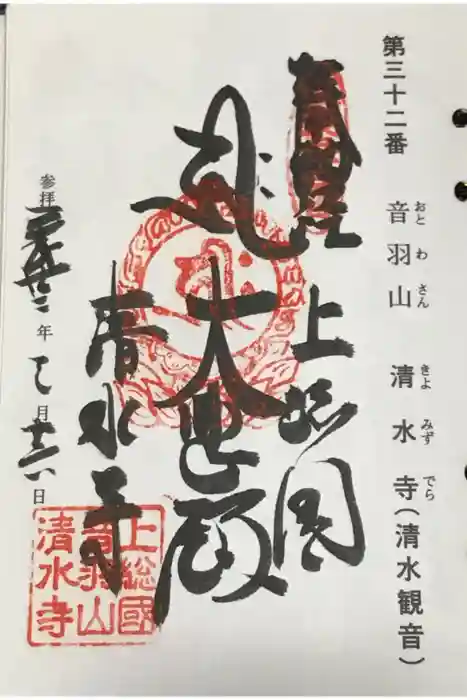 第三十二番 音羽山 清水寺(清水観音)
おとわさん きよみずでら
奉拝
上総国
大悲殿
清水寺
参拝 年 七月 日
上総國
音羽山
清水寺